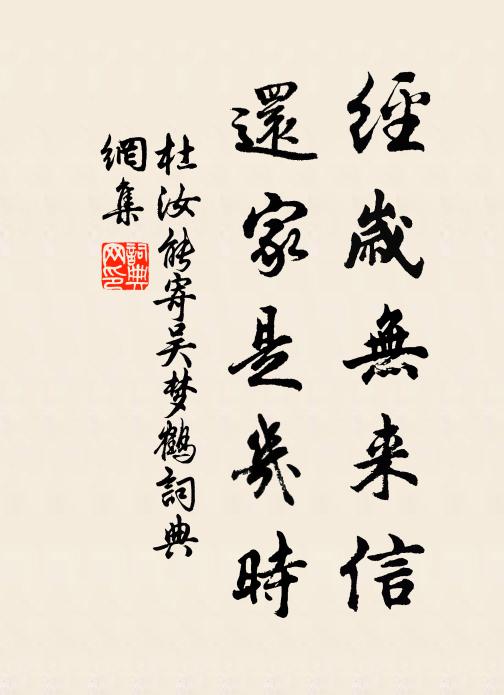 經歲無来信
還家是幾時
杜汝能寄吴梦鶴詞典
網集
詞典網印